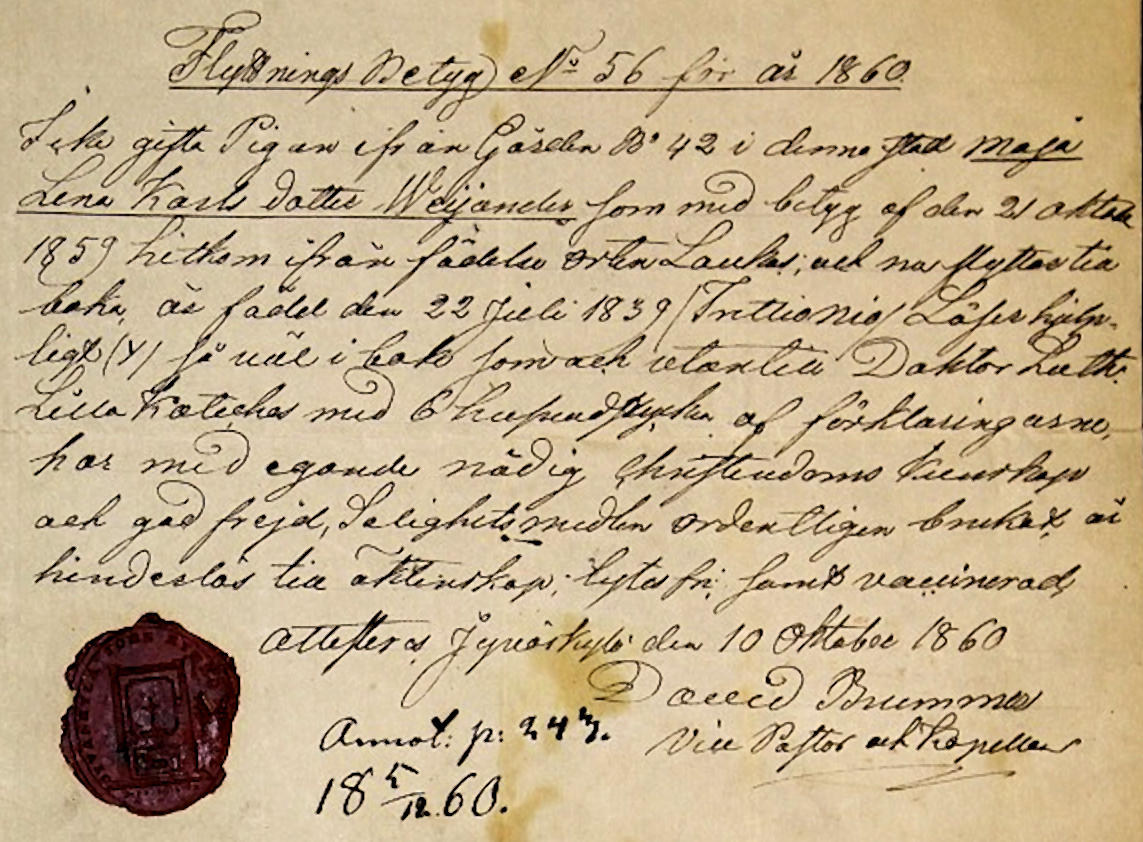 Flyttnings Betyg No 56 för år 1860
Icke gifta Pigan ifrån Gården No 42 i denna stad Maja
Lena Karls dotter Weijander som med betyg af den 21 oktob
1859 hitkom ifrån födelse orten Laukas, och nu flyttar till
baka, är född den 22 Juli 1839 (Trettionio) Läser hjelp-
ligt (Y) så väl i bok som och utantill Doktor Luth:
Lilla Kateches med 6 hufvudstycken af förklaringarne,
har med egande nödig Christendoms kunskap
och god frejd, Salighetsmedlen ordentligen brukat, är
hinderslös till äktenskap; lytes fri; samt vaccinerad,
Attesteras Jyväskylä den 10 Oktober 1860
David Brummer
Vice Pastor och Kapellan
Annot: p: 243.
18 5/12. 60.